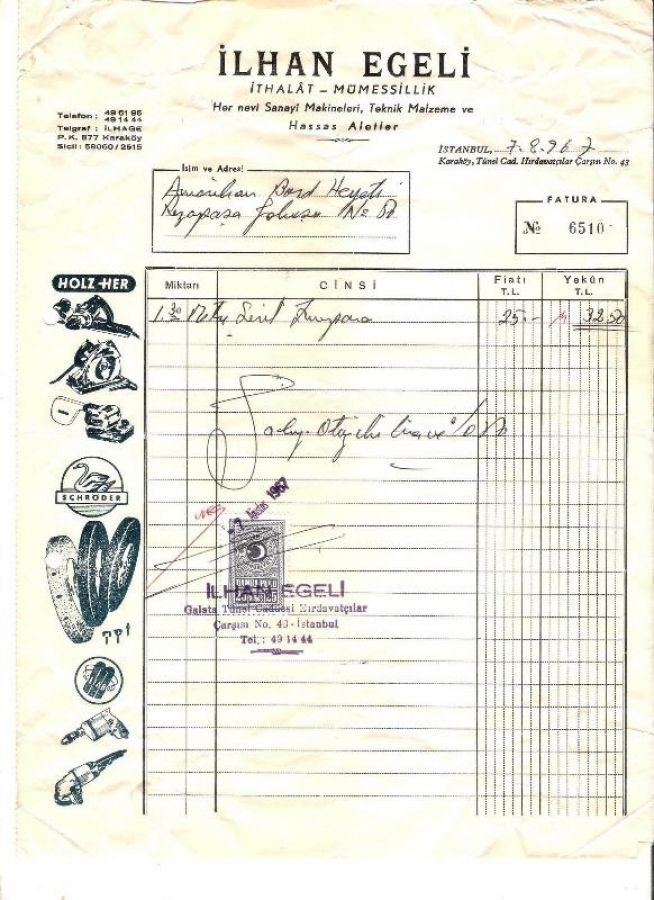 İLHAN EGELİ
İTHALÂT – MÜMESSİLLİK
Her nevi Sanayi Makineleri, Teknik Malzeme ve
Hassas Aletler
Telefon: 49 61 95
49 14 44
Telgraf: İLHAGE
P. K. 877 Karaköy
Sicil: 58060/2515
İSTANBUL, 7.8.967
Karaköy, Tünel Cad. Hırdavatçılar Çarşısı No. 43
İsim ve Adresi
Amerikan Bord Heyeti
Rızapaşa Yokuşu No 50
FATURA
№ 6510
HOLZ-HER
Miktarı CİNSİ Fiatı T.L. Yekûn T.L.
1.30 Metre Zımpara 25.- 32.50
Otuz iki lira
SCHRÖDER
Ağustos 1967
DAMGA PULU
İLHAN EGELİ
Galata Tünel Caddesi Hırdavatçılar
Çarşısı No. 43 - İstanbul
Tel.: 49 14 44